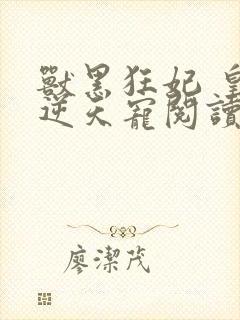 獸黑狂妃 皇
逆天寵閱讀
廖潔茂